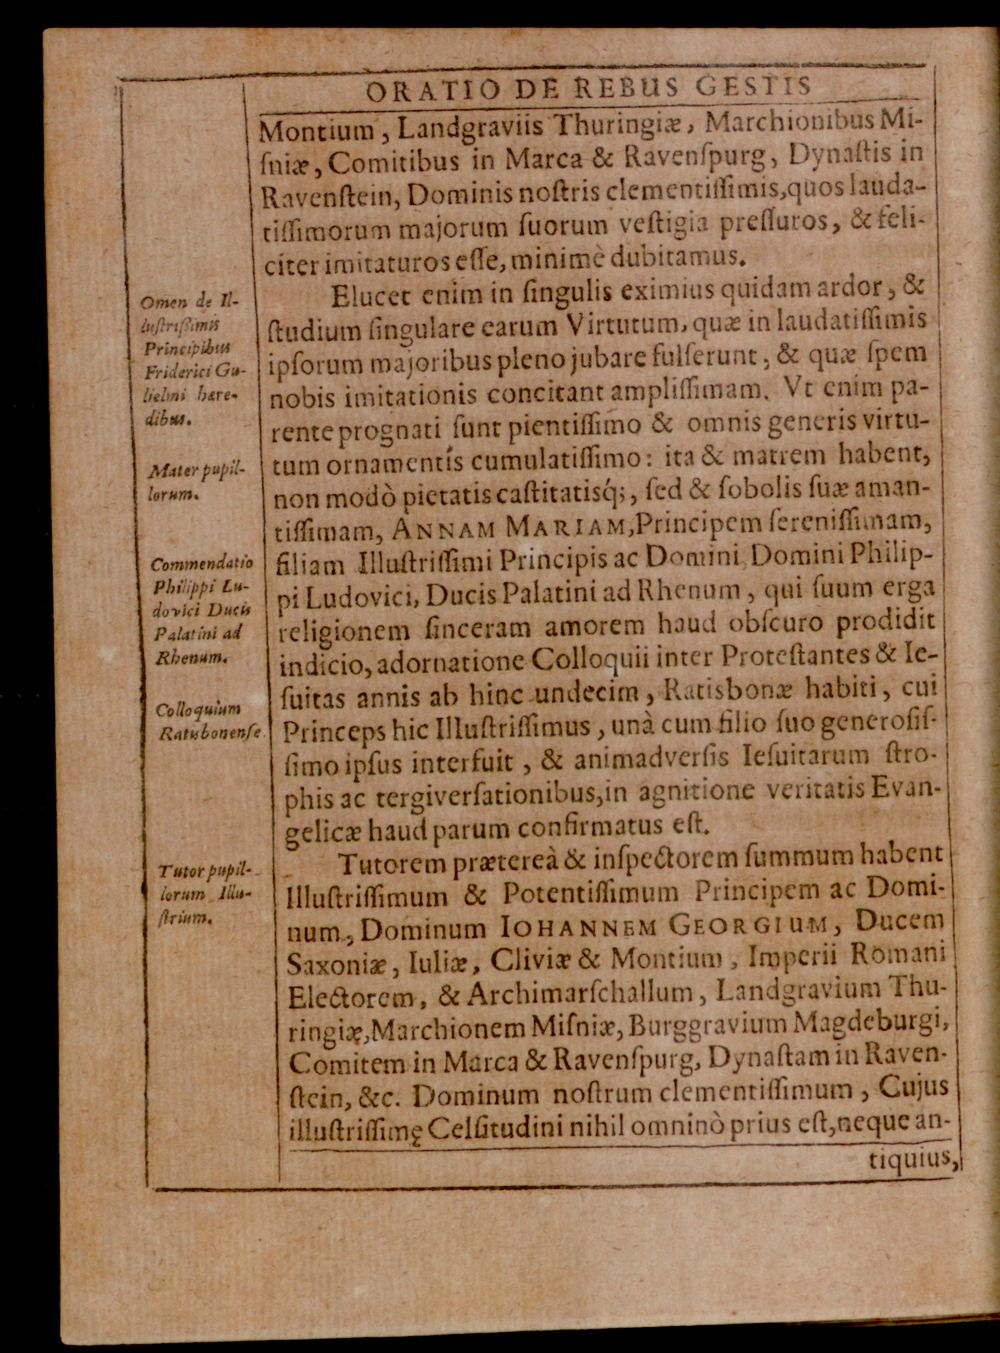 ORATIO DE REBUS GESTIS
Montium, Landgraviis Thuringiæ, Marchionibus Mi-
ſniæ, Comitibus in Marca & Ravenſpurg, Dynaſtis in
Ravenſtein, Dominis noſtris clementiſſimis, quos lauda-
tiſſimorum majorum ſuorum veſtigia preſſuros, & feli-
citer imitaturos eſſe, minimè dubitamus.
Elucet enim in ſingulis eximius quidam ardor, &
ſtudium ſingulare earum Virtutum, quæ in laudatiſſimis
ipſorum majoribus pleno jubare fulſerunt, & quæ ſpem
nobis imitationis concitant ampliſſimam. Vt enim pa-
rente prognati ſunt pientiſſimo & omnis generis virtu-
tum ornamentis cumulatiſſimo: ita & matrem habent,
non modò pietatis caſtitatisq́;, ſed & ſobolis ſuæ aman-
tiſſimam, ANNAM MARIAM, Principem ſereniſſimam,
filiam Illuſtriſſimi Principis ac Domini, Domini Philip-
pi Ludovici, Ducis Palatini ad Rhenum, qui ſuum erga
religionem ſinceram amorem haud obſcuro prodidit
indicio, adornatione Colloquii inter Proteſtantes & Ie-
ſuitas annis ab hinc undecim, Ratisbonæ habiti, cui
Princeps hic Illuſtriſſimus, unà cum filio ſuo generoſiſ-
ſimo ipſus interfuit, & animadverſis Ieſuitarum ſtro-
phis ac tergiverſationibus, in agnitione veritatis Evan-
gelicæ haud parum confirmatus eſt.
Tutorem prætereà & inſpectorem ſummum habent
Illuſtriſſimum & Potentiſſimum Principem ac Domi-
num, Dominum IOHANNEM GEORGIUM, Ducem
Saxoniæ, Iuliæ, Cliviæ & Montium, Imperii Romani
Electorem, & Archimarſchallum, Landgravium Thu-
ringię, Marchionem Miſniæ, Burggravium Magdeburgi,
Comitem in Marca & Ravenſpurg, Dynaſtam in Raven-
ſtein, &c. Dominum noſtrum clementiſſimum, Cujus
illuſtriſſimę Celſitudini nihil omninò prius eſt, neque an-
tiquius,
Omen de Il-
luſtriſſimis
Principibus
Friderici Gu-
lielmi hære-
dibus.
Mater pupil-
lorum.
Commendatio
Philippi Lu-
dovici Ducis
Palatini ad
Rhenum.
Colloquium
Ratisbonenſe.
Tutor pupil-
lorum Illu-
ſtrium.